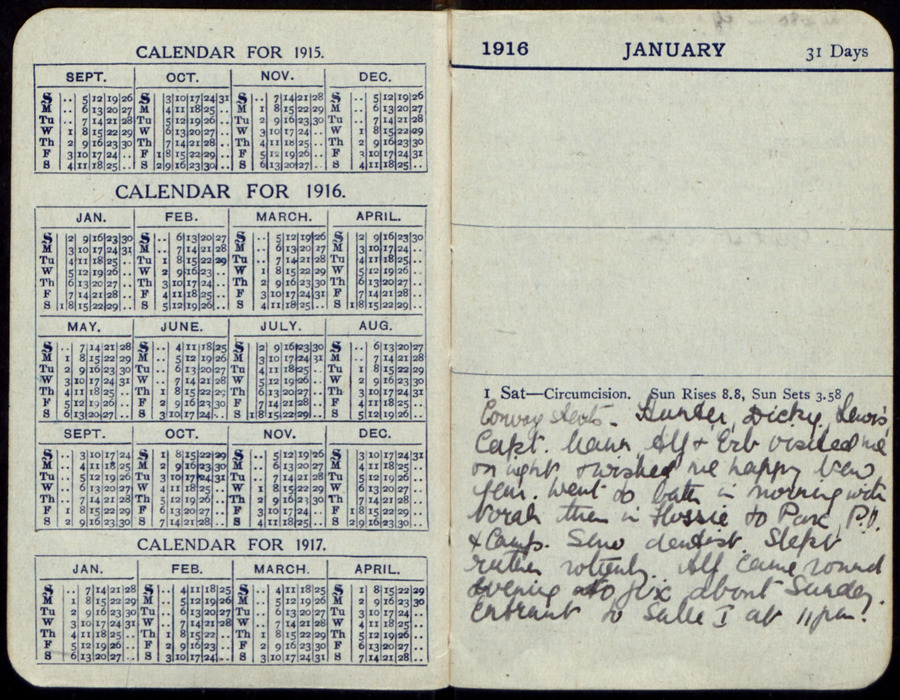 CALENDAR FOR 1915.
SEPT. OCT. NOV. DEC.
S .. 5 12 19 26 S 3 10 17 24 31 S .. 7 14 21 28 S .. 5 12 19 26
M .. 6 13 20 27 M 4 11 18 25 .. M 1 8 15 22 29 M .. 6 13 20 27
Tu .. 7 14 21 28 Tu 5 12 19 26 .. Tu 2 9 16 23 30 Tu .. 7 14 21 28
W 1 8 15 22 29 W 6 13 20 27 .. W 3 10 17 24 .. W 1 8 15 22 29
Th 2 9 16 23 30 Th 7 14 21 28 .. Th 4 11 18 25 .. Th 2 9 16 23 30
F 3 10 17 24 .. F 1 8 15 22 29 .. F 5 12 19 26 .. F 3 10 17 24 31
S 4 11 18 25 .. S 2 9 16 23 30 .. S 6 13 20 27 .. S 4 11 18 25 ..
CALENDAR FOR 1916.
JAN. FEB. MARCH. APRIL.
S 2 9 16 23 30 S .. 6 13 20 27 S .. 5 12 19 26 S 2 9 16 23 30
M 3 10 17 24 31 M .. 7 14 21 28 M .. 6 13 20 27 M 3 10 17 24 ..
Tu 4 11 18 25 .. Tu 1 8 15 22 29 Tu .. 7 14 21 28 Tu 4 11 18 25 ..
W 5 12 19 26 .. W 2 9 16 23 .. W 1 8 15 22 29 W 5 12 19 26 ..
Th 6 13 20 27 .. Th 3 10 17 24 .. Th 2 9 16 23 30 Th 6 13 20 27 ..
F 7 14 21 28 .. F 4 11 18 25 .. F 3 10 17 24 31 F 7 14 21 28 ..
S 1 8 15 22 29 .. S 5 12 19 26 .. S 4 11 18 25 .. S 1 8 15 22 29 ..
MAY. JUNE. JULY. AUG.
S .. 7 14 21 28 S .. 4 11 18 25 S 2 9 16 23 30 S .. 6 13 20 27
M 1 8 15 22 29 M .. 5 12 19 26 M 3 10 17 24 31 M .. 7 14 21 28
Tu 2 9 16 23 30 Tu .. 6 13 20 27 Tu 4 11 18 25 .. Tu 1 8 15 22 29
W 3 10 17 24 31 W .. 7 14 21 28 W 5 12 19 26 .. W 2 9 16 23 30
Th 4 11 18 25 .. Th 1 8 15 22 29 Th 6 13 20 27 .. Th 3 10 17 24 31
F 5 12 19 26 .. F 2 9 16 23 30 F 7 14 21 28 .. F 4 11 18 25 ..
S 6 13 20 27 .. S 3 10 17 24 .. S 1 8 15 22 29 .. S 5 12 19 26 ..
SEPT. OCT. NOV. DEC.
S .. 3 10 17 24 S 1 8 15 22 29 S .. 5 12 19 26 S .. 3 10 17 24 31
M .. 4 11 18 25 M 2 9 16 23 30 M .. 6 13 20 27 M .. 4 11 18 25 ..
Tu .. 5 12 19 26 Tu 3 10 17 24 31 Tu .. 7 14 21 28 Tu .. 5 12 19 26 ..
W .. 6 13 20 27 W 4 11 18 25 .. W 1 8 15 22 29 W .. 6 13 20 27 ..
Th .. 7 14 21 28 Th 5 12 19 26 .. Th 2 9 16 23 30 Th .. 7 14 21 28 ..
F 1 8 15 22 29 F 6 13 20 27 .. F 3 10 17 24 .. F 1 8 15 22 29 ..
S 2 9 16 23 30 S 7 14 21 28 .. S 4 11 18 25 .. S 2 9 16 23 30 ..
CALENDAR FOR 1917.
JAN. FEB. MARCH. APRIL.
S .. 7 14 21 28 S .. 4 11 18 25 S .. 4 11 18 25 S 1 8 15 22 29
M 1 8 15 22 29 M .. 5 12 19 26 M .. 5 12 19 26 M 2 9 16 23 30
Tu 2 9 16 23 30 Tu .. 6 13 20 27 Tu .. 6 13 20 27 Tu 3 10 17 24 ..
W 3 10 17 24 31 W .. 7 14 21 28 W .. 7 14 21 28 W 4 11 18 25 ..
Th 4 11 18 25 .. Th 1 8 15 22 .. Th 1 8 15 22 29 Th 5 12 19 26 ..
F 5 12 19 26 .. F 2 9 16 23 .. F 2 9 16 23 30 F 6 13 20 27 ..
S 6 13 20 27 .. S 3 10 17 24 .. S 3 10 17 24 31 S 7 14 21 28 ..
1916 JANUARY 31 Days
1 Sat—Circumcision. Sun Rises 8.8, Sun Sets 3.58
Convoy - Hunter, Dicky, Lewis,
Capt. Mann Alf & Erb visited me
on night & wished me happy New
Year. Went to bath in morning with
Norah then in Hossie to Park P.O.
& Camp. Saw dentist. Slept
rather rottenly. Alf came round
evening to fix about Sunday.
Entrant to Salle I at 11pm!